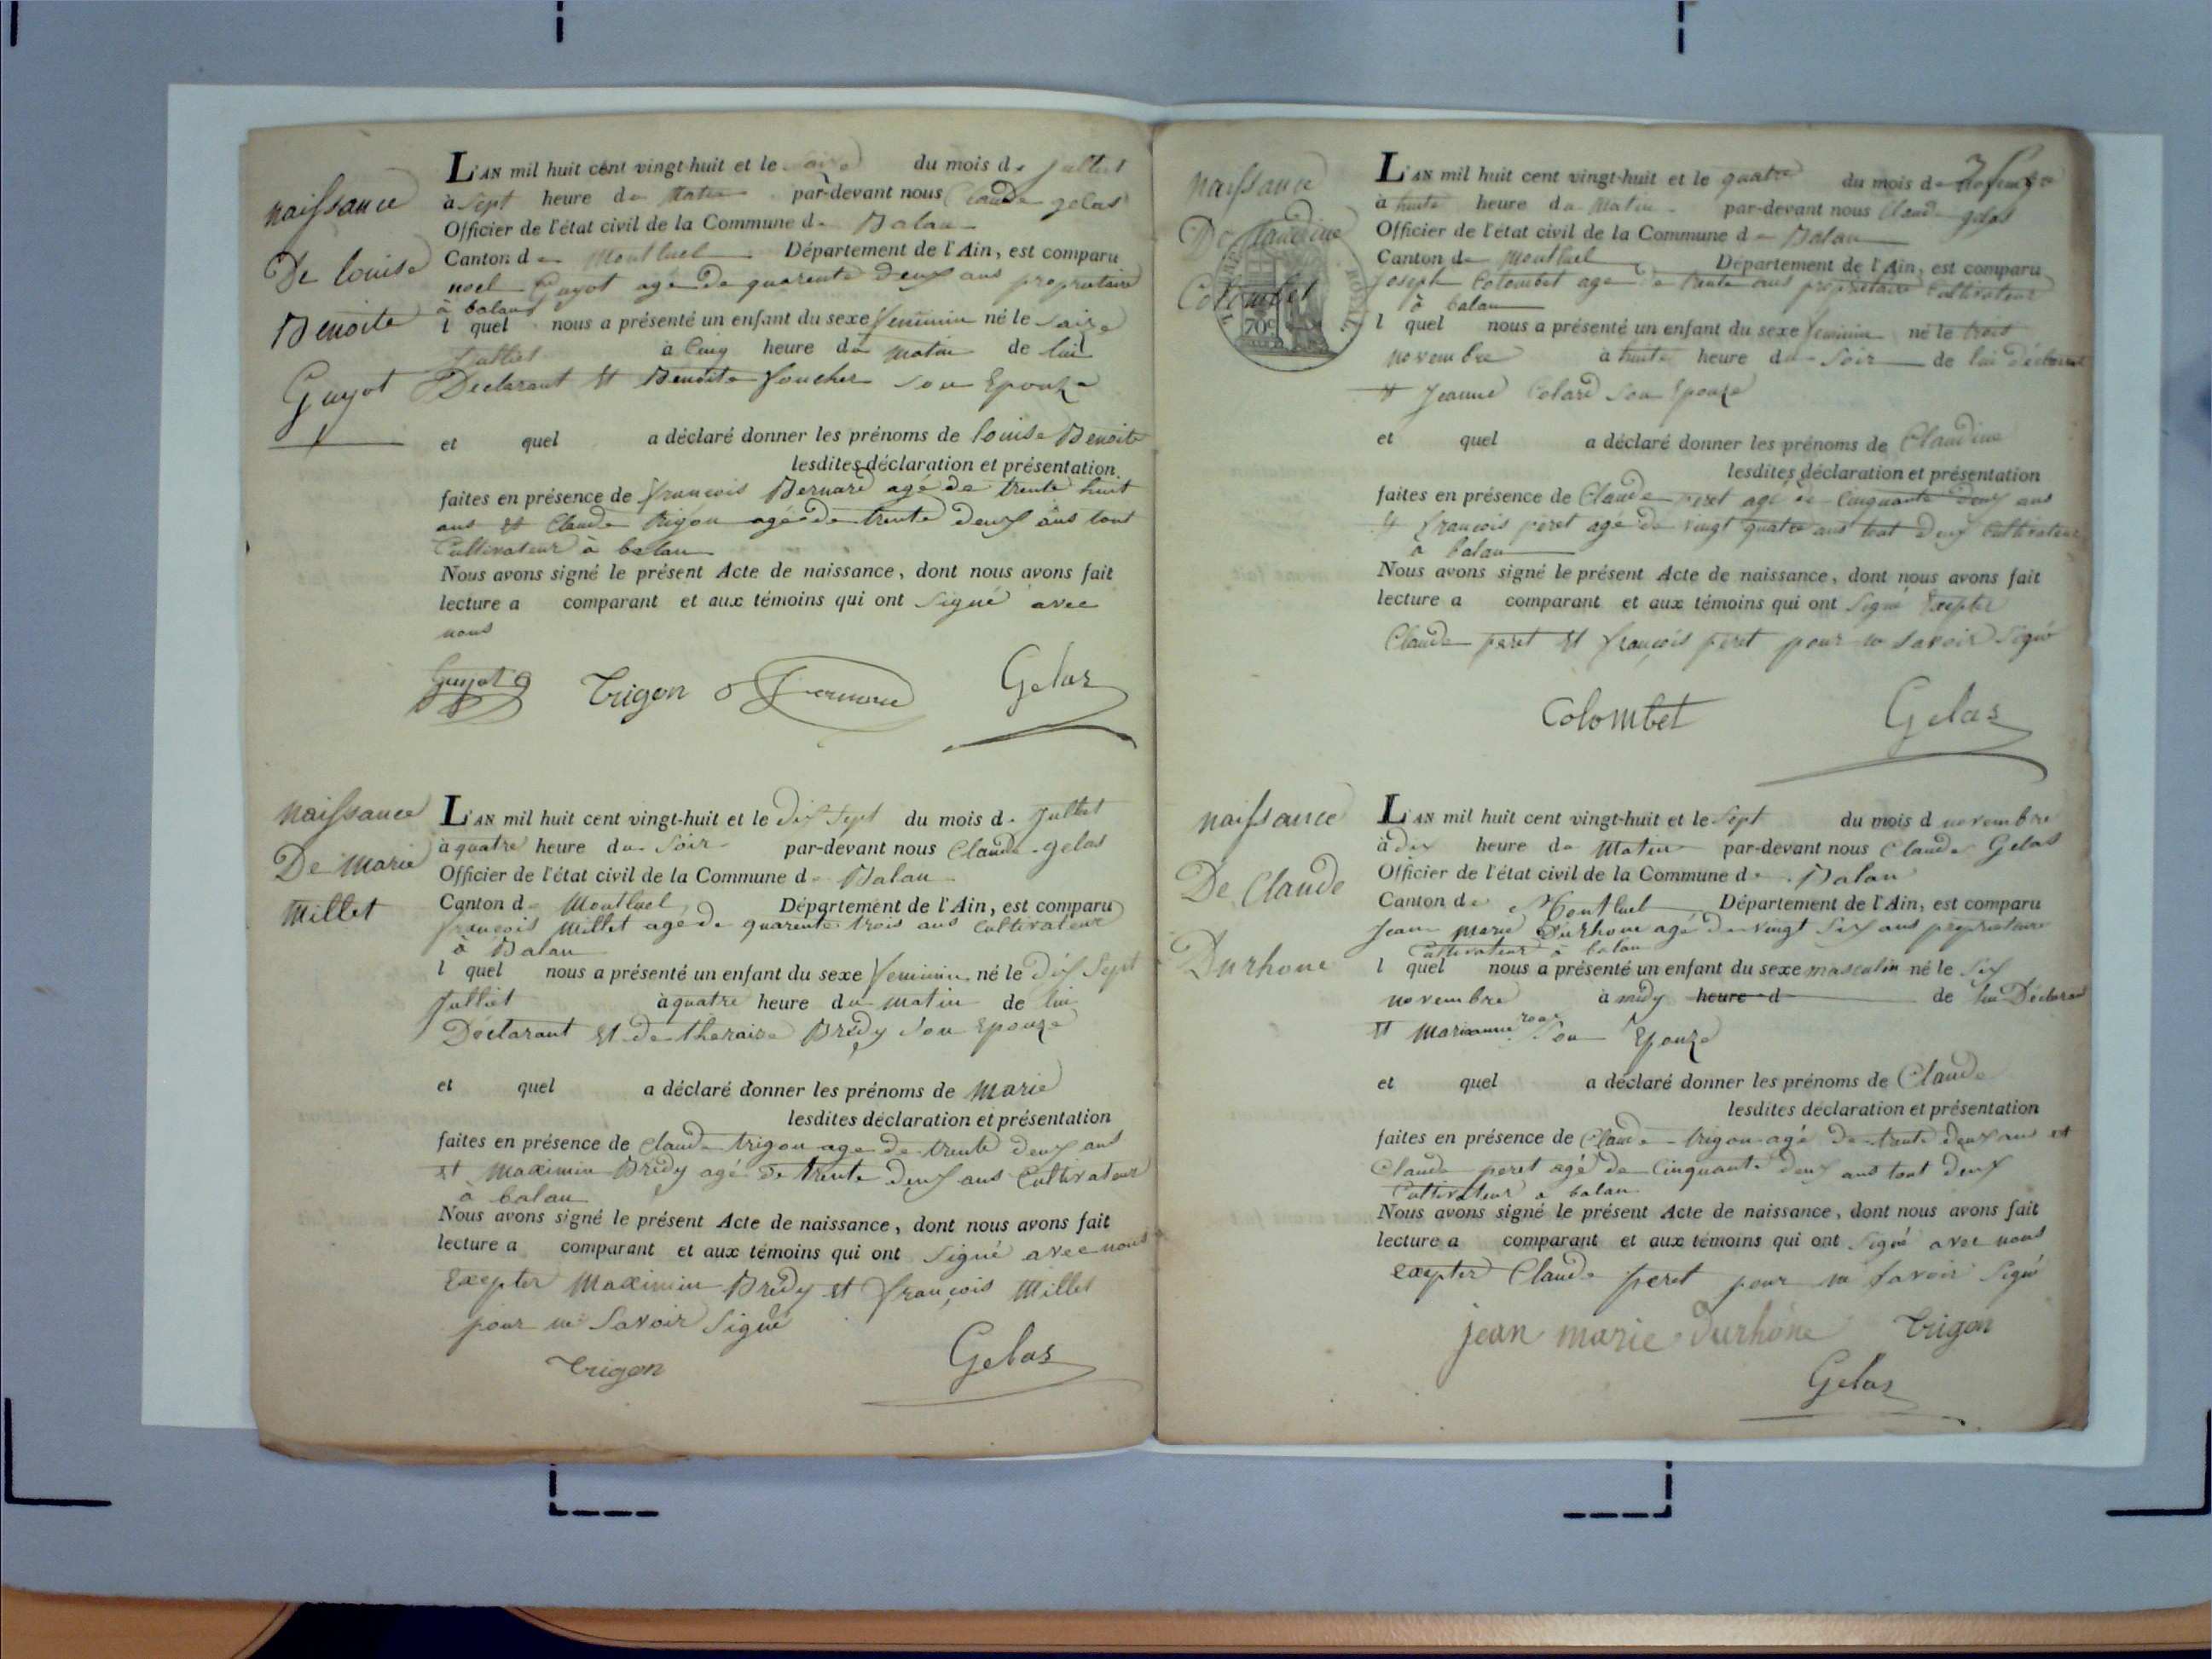 naissance
De louise
Benoite
Guyot
L'AN mil huit cent vingt-huit et le saize du mois de Julliet
à sept heure du Matin par-devant nous Claude gelas
Officier de l'état civil de la Commune de Balan
Canton de Montluel Département de l'Ain, est comparu
noel Guyot agé de quarente deux ans propriétaire
à balan
l quel nous a présenté un enfant du sexe feminin né le saize
Julliet à Cinq heure du matin de lui
Déclarant et Benoite foucher son Epouze
et quel a déclaré donner les prénoms de louise Benoite
lesdites déclaration et présentation
faites en présence de françois Bernard agé de trente huit
ans et Claude trigon agé de trente deux ans tout
Cultivateur à balan
Nous avons signé le présent Acte de naissance, dont nous avons fait
lecture a comparant et aux témoins qui ont signé avec
nous
Guyot Trigon Gelas
naissance
De marie
Millet
L'AN mil huit cent vingt-huit et le dix sept du mois de Julliet
à quatre heure du Soir par-devant nous Claude gelas
Officier de l'état civil de la Commune de Balan
Canton de Montluel Département de l'Ain, est comparu
françois Millet agé de quarente trois ans Cultivateur
à Balan
l quel nous a présenté un enfant du sexe feminin né le dix sept
Julliet à quatre heure du matin de lui
Déclarant et de theraise Brédy son Epouze
et quel a déclaré donner les prénoms de marie
lesdites déclaration et présentation
faites en présence de Claude trigon age de trente deux ans
et Maximin Brédy agé de trente deux ans Cultivateur
à balan
Nous avons signé le présent Acte de naissance, dont nous avons fait
lecture a comparant et aux témoins qui ont signé avec nous
Exepter Maximin Brédy et françois Millet
pour ne Savoir Signé
Trigon Gelas
naissance
De Claudine
Colombet
ROYAL
70c
L'AN mil huit cent vingt-huit et le quatre du mois de novembre
à huite heure du Matin par-devant nous Claude gelas
Officier de l'état civil de la Commune de Balan
Canton de Montluel Département de l'Ain, est comparu
Joseph Colombet age de trente ans propriétaire Cultivateur
à balan
l quel nous a présenté un enfant du sexe feminin né le trois
novembre à huite heure du Soir de lui déclarant
et Jeanne Colard son Epouze
et quel a déclaré donner les prénoms de Claudine
lesdites déclaration et présentation
faites en présence de Claude peret agé de Cinquante deux ans
et françois péret agé de vingt quatre ans tout deux Cultivateur
à balan
Nous avons signé le présent Acte de naissance, dont nous avons fait
lecture a comparant et aux témoins qui ont signé Exepter
Claude peret et françois péret pour ne savoir signé
Colombet Gelas
naissance
De Claude
Durhone
L'AN mil huit cent vingt-huit et le Sept du mois d novembre
à dix heure du Matin par-devant nous Claude Gelas
Officier de l'état civil de la Commune de Balan
Canton de Montluel Département de l'Ain, est comparu
Jean marie Durhone agé de vingt Six ans propriétaire
Cultivateur à balan
l quel nous a présenté un enfant du sexe masculin né le Six
novembre à midy heure d de lui Déclarant
et Marianne son Epouze
et quel a déclaré donner les prénoms de Claude
lesdites déclaration et présentation
faites en présence de Claude trigon agé de trente deux ans et
Claude peret agé de Cinquante deux ans tout deux
Cultivateur a balan
Nous avons signé le présent Acte de naissance, dont nous avons fait
lecture a comparant et aux témoins qui ont signé avec nous
exepter Claude peret pour ne savoir signé
jean marie durhône Trigon
Gelas